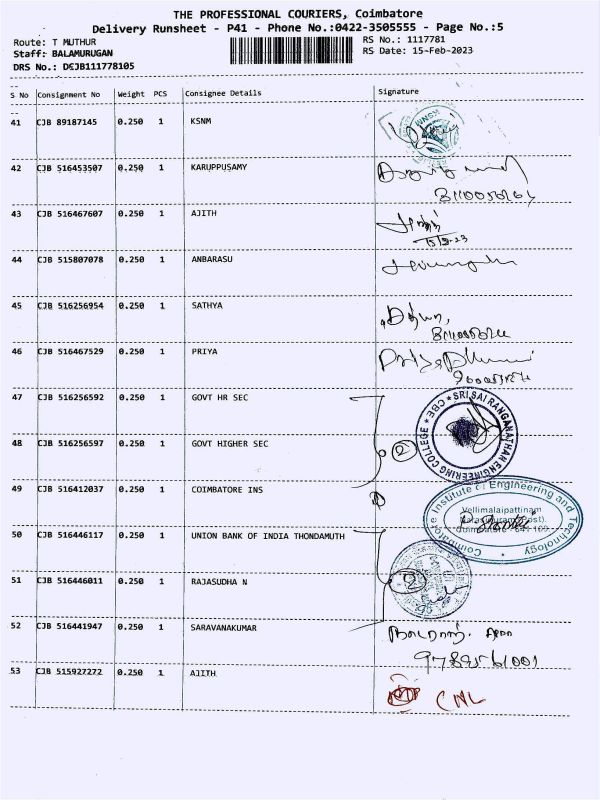 THE PROFESSIONAL COURIERS, Coimbatore
Delivery Runsheet - P41 - Phone No.:0422-3505555 - Page No.:5
Route: T MUTHUR
RS No.: 1117781
Staff: BALAMURUGAN
RS Date: 15-Feb-2023
DRS No.: DCJB111778105
S No Consignment No Weight PCS Consignee Details Signature
41 CJB 89187145 0.250 1 KSNM
42 CJB 516453507 0.250 1 KARUPPUSAMY
43 CJB 516467607 0.250 1 AJITH
15/2-23
44 CJB 515807078 0.250 1 ANBARASU
45 CJB 516256954 0.250 1 SATHYA
46 CJB 516467529 0.250 1 PRIYA
47 CJB 516256592 0.250 1 GOVT HR SEC
SRI SAI RANGANATHAN ENGINEERING COLLEGE * CBE *
48 CJB 516256597 0.250 1 GOVT HIGHER SEC
2
49 CJB 516412037 0.250 1 COIMBATORE INS
Coimbatore Institute of Engineering and Technology
Vellimalaipattinam
Coimbatore - 641 109
50 CJB 516446117 0.250 1 UNION BANK OF INDIA THONDAMUTH
51 CJB 516446011 0.250 1 RAJASUDHA N
2
52 CJB 516441947 0.250 1 SARAVANAKUMAR
53 CJB 515927272 0.250 1 AJITH
CNL